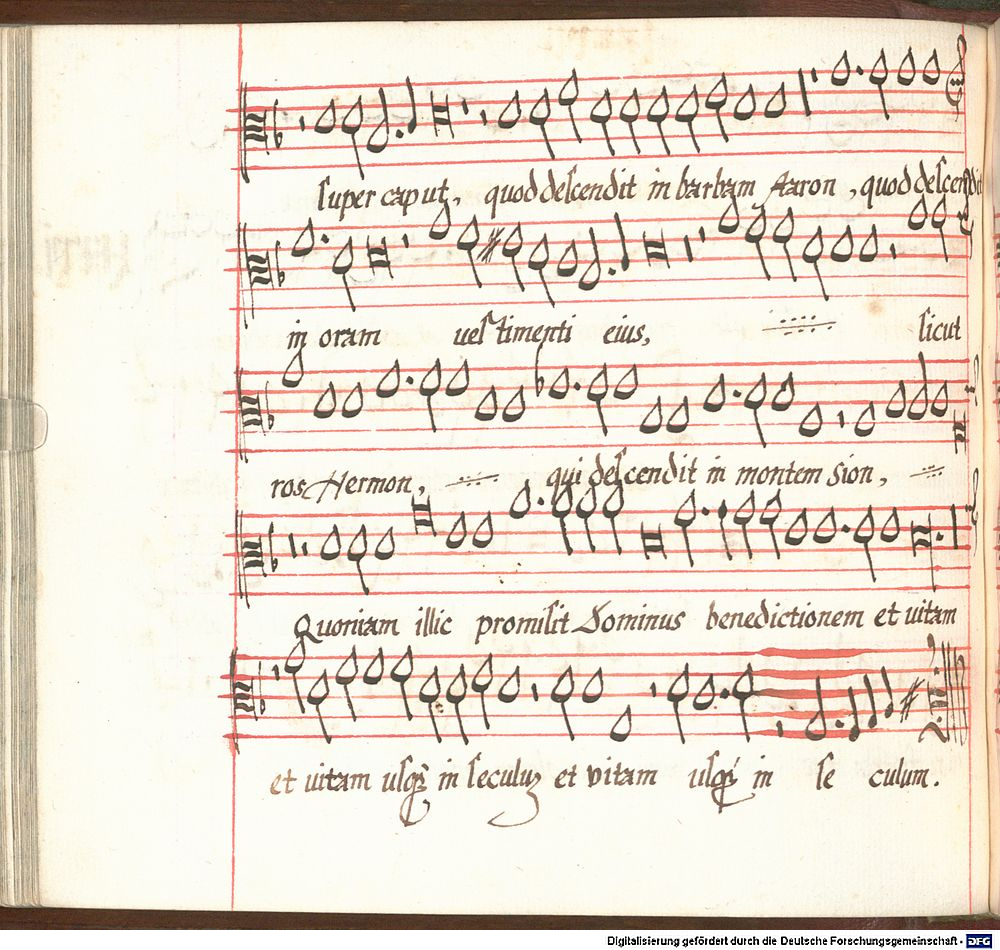 super caput, quod descendit in barbam Aaron, quod descendit
in oram uestimenti eius, sicut
ros Hermon, qui descendit in montem Sion,
Quoniam illic promisit Dominus benedictionem et uitam
et uitam usqꝫ in seculuꝫ et vitam usqꝫ in se culum.
Digitalisierung gefördert durch die Deutsche Forschungsgemeinschaft - DFG